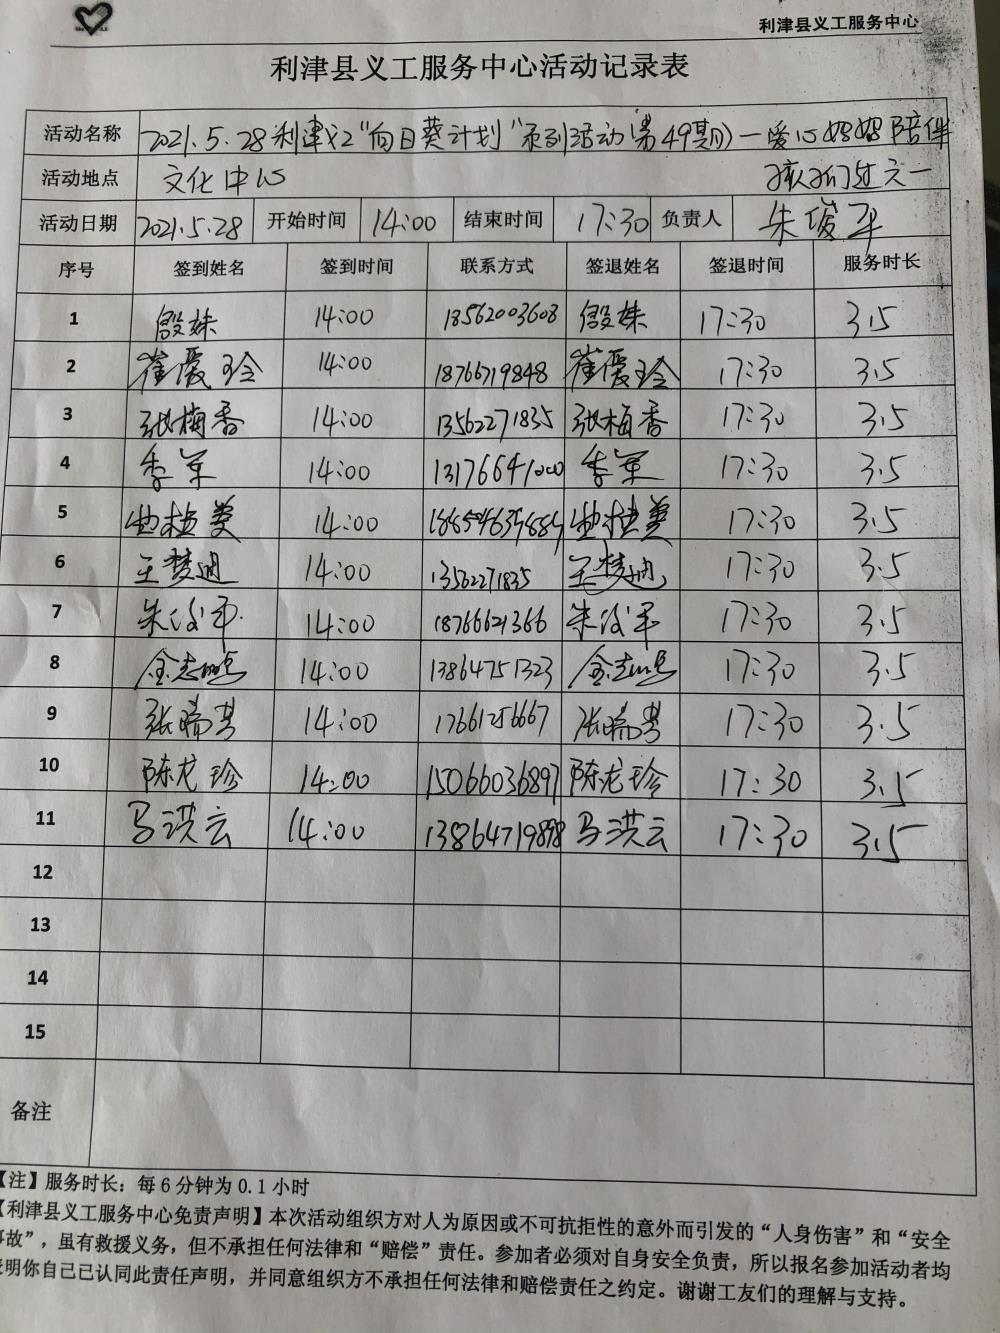 利津县义工服务中心
利津县义工服务中心活动记录表
活动名称 2021.5.28利津义工"向日葵计划"系列活动(第49期)—爱心妈妈陪伴
孩子们过六一
活动地点 文化中心
活动日期 2021.5.28 开始时间 14:00 结束时间 17:30 负责人 朱俊平
序号 签到姓名 签到时间 联系方式 签退姓名 签退时间 服务时长
1 殷姝 14:00 18562003608 殷姝 17:30 3.5
2 崔爱玲 14:00 18766719848 崔爱玲 17:30 3.5
3 张梅香 14:00 13562271835 张梅香 17:30 3.5
4 李军 14:00 13176641000 李军 17:30 3.5
5 曲桂美 14:00 曲桂美 17:30 3.5
6 王梦迪 14:00 13562271835 王梦迪 17:30 3.5
7 朱俊平 14:00 18766621366 朱俊平 17:30 3.5
8 14:00 13864751323 17:30 3.5
9 张瑞芳 14:00 17661256667 张瑞芳 17:30 3.5
10 陈龙珍 14:00 15066036897 陈龙珍 17:30 3.5
11 马洪云 14:00 马洪云 17:30 3.5
12
13
14
15
备注
【注】服务时长：每6分钟为0.1小时
【利津县义工服务中心免责声明】本次活动组织方对人为原因或不可抗拒性的意外而引发的“人身伤害”和“安全
事故”，虽有救援义务，但不承担任何法律和“赔偿”责任。参加者必须对自身安全负责，所以报名参加活动者均
表明你自己已认同此责任声明，并同意组织方不承担任何法律和赔偿责任之约定。谢谢工友们的理解与支持。